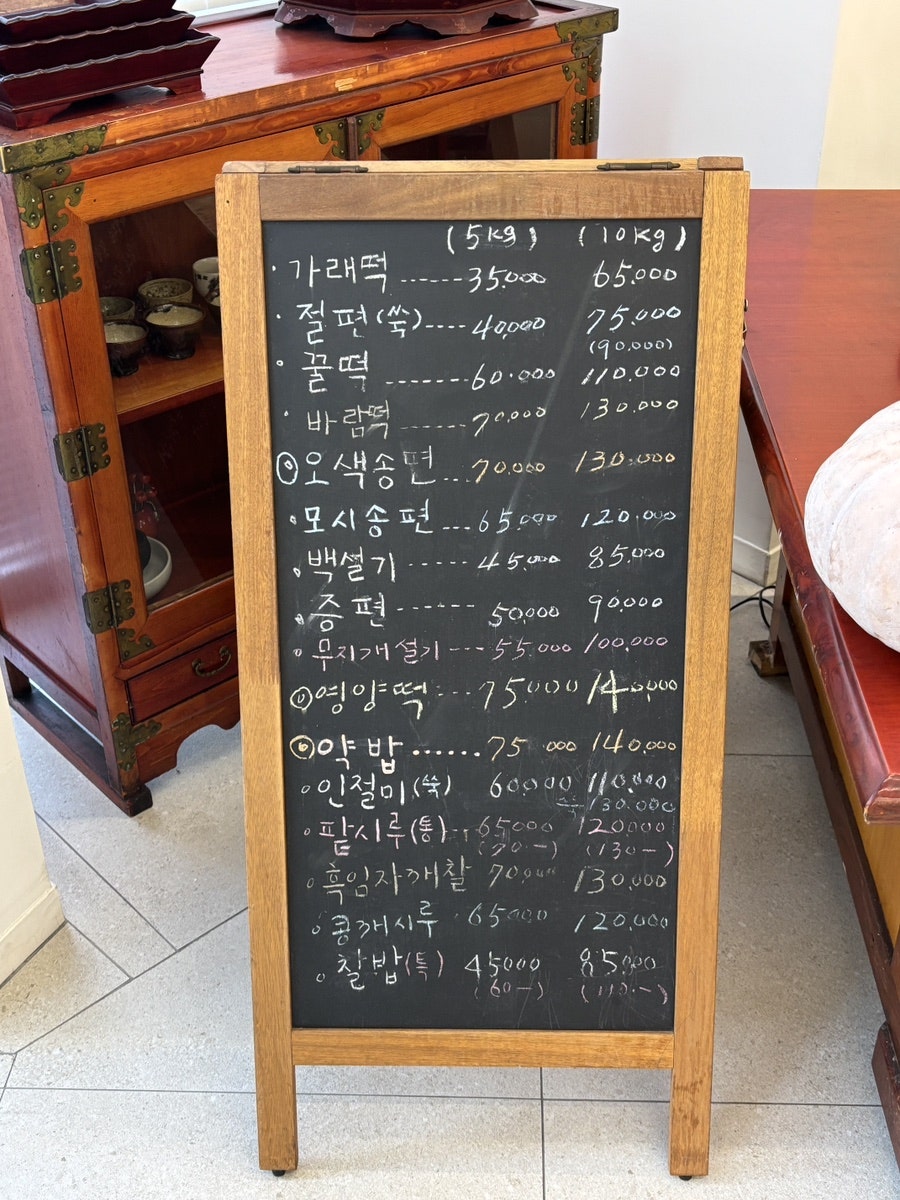 (5kg) (10kg)
· 가래떡 ...... 35.000 65.000
· 절편(쑥).... 40,000 75.000
(90,000)
◦ 꿀떡 ....... 60.000 110.000
· 바람떡 ...... 70,000 130.000
◎ 오색송편... 70.000 130.000
· 모시송편 ... 65.000 120.000
◦ 백설기 ..... 45.000 85.000
◦ 증편 ...... 50,000 90.000
◦ 무지개설기 --- 55.000 100.000
◎ 영양떡 .... 75000 140,000
◎ 약밥...... 75 000 140.000
◦ 인절미(쑥) 60.000 110.000
쑥 130.000
◦ 팥시루(통)... 65000 120000
(70.-) (130-)
◦ 흑임자깨찰 70,000 130,000
◦ 콩깨시루 · 65000 120,000
◦ 찰밥(특) 45000 85000
(60-) (110.-)